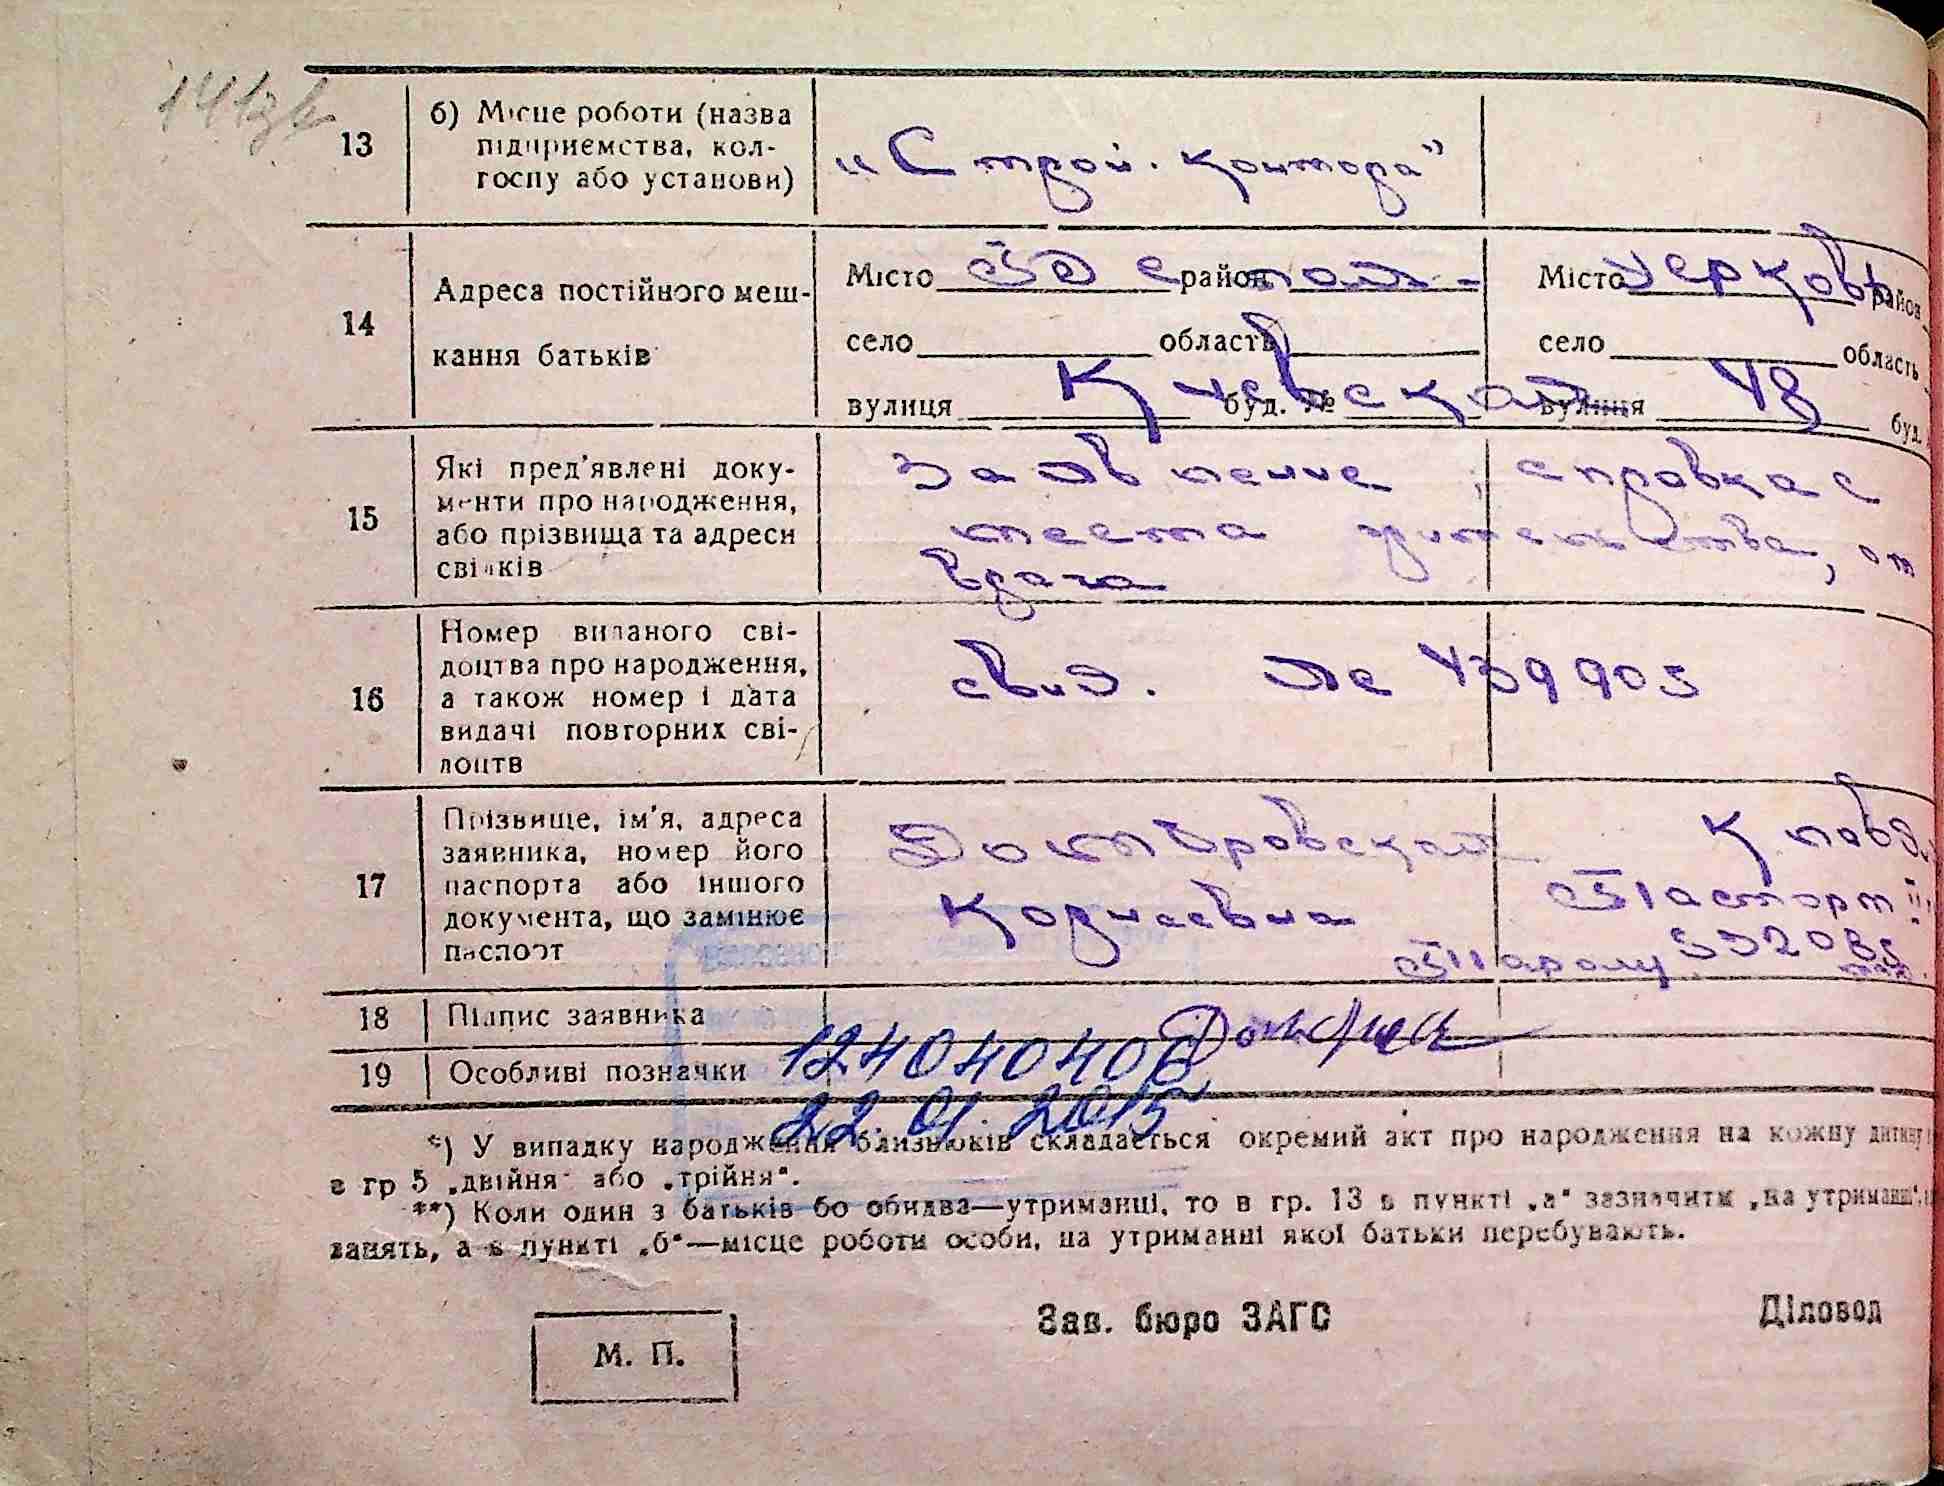 13
б) Місце роботи (назва
підприємства, кол-
госпу або установи)
„Строй. контора”
14
Адреса постійного меш-
кання батьків
Місто район
село область
вулиця Киевская буд. №
Місто район
село область
вулиця 43 буд.
15
Які пред'явлені доку-
менти про народження,
або прізвища та адреси
свідків
Заявление, справка с
места жительства, от
врача
16
Номер виданого сві-
доцтва про народження,
а також номер і дата
видачі повторних сві-
доцтв
свид. 439905
17
Прізвище, ім'я, адреса
заявника, номер його
паспорта або іншого
документа, що замінює
паспорт
Корнеевна
Паспорт
18
Підпис заявника
19
Особливі позначки
22.01.2015
*) У випадку народження близнюків складається окремий акт про народження на кожну дитину
в гр 5 „двійня" або „трійня".
**) Коли один з батьків бо обидва—утриманці, то в гр. 13 в пункті „а" зазначити „на утриманні",
занять, а в пункті „б"—місце роботи особи, на утриманні якої батьки перебувають.
М. П.
Зав. бюро ЗАГС
Діловод